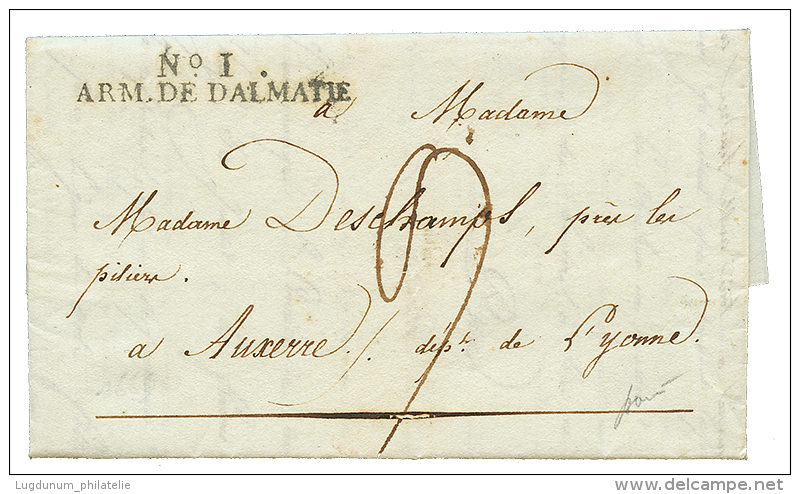 No I.
ARM. DE DALMATIE
a Madame
Madame Deschamps, près les
piliers.
a Auxerre /. dépt. de l'yonne.
9
Lugdunum_philatelie
delcampe.net